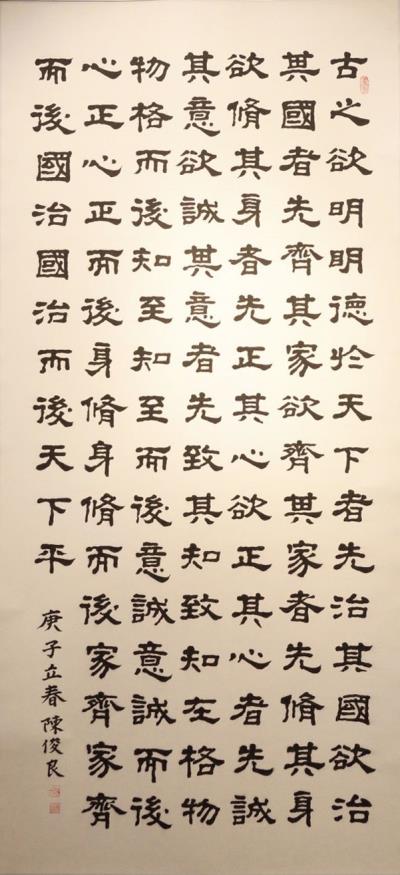 古之欲明明德於天下者先治其國欲治
其國者先齊其家欲齊其家者先脩其身
欲脩其身者先正其心欲正其心者先誠
其意欲誠其意者先致其知致知在格物
物格而後知至知至而後意誠意誠而後
心正心正而後身脩身脩而後家齊家齊
而後國治國治而後天下平
庚子立春陳俊良